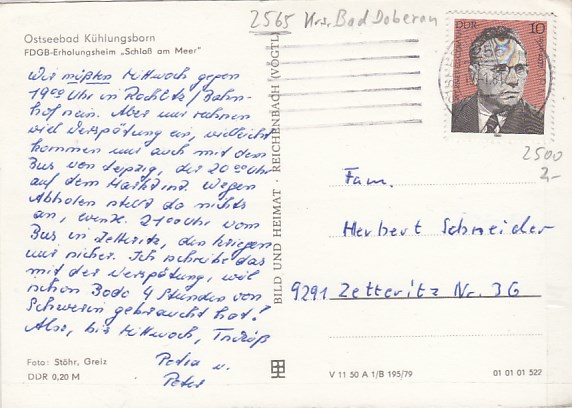 2565 Krs. Bad Doberan
Ostseebad Kühlungsborn
FDGB-Erholungsheim „Schloß am Meer"
DDR 10
Wir müßten Mittwoch gegen
19⁰⁰ Uhr in Rochlitz/Bahn-
hof sein. Aber wir nehmen
viel Verspätung an, vielleicht
kommen wir auch mit dem
Bus von Leipzig, der 20⁰⁰ Uhr
auf dem Markt ist. Wegen
Abholen stellt da nichts
an, wenn. 21⁰⁰ Uhr vom
Bus in Zetteritz, den kriegen
wir sicher. Ich schreibe das
mit der Verspätung, weil
schon Bodo 4 Stunden von
Schwerin gebraucht hat!
Also, bis Mittwoch, Tschüß
Petra u.
Peter
BILD UND HEIMAT · REICHENBACH (VOGTL)
2500
2,-
Fam.
Herbert Schneider
9291 Zetteritz Nr. 3G
Foto: Stöhr, Greiz
DDR 0,20 M
V 11 50 A 1/B 195/79
01 01 01 522